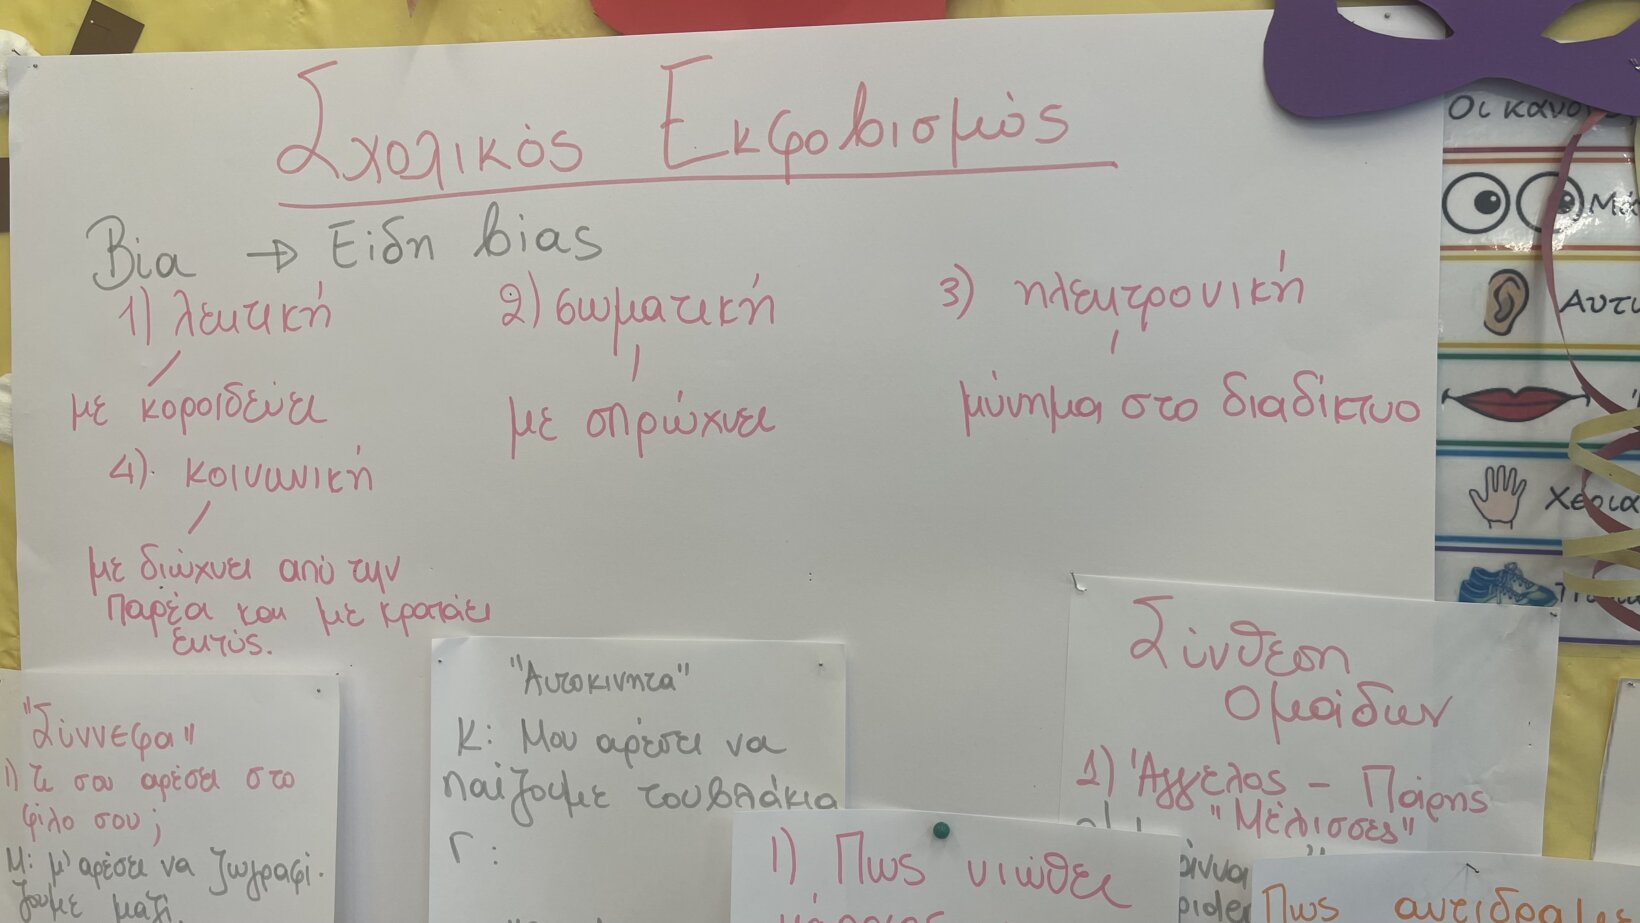 Σχολικός Εκφοβισμός
Βία → Είδη βίας
1) λεκτική
2) σωματική
3) ηλεκτρονική
με κοροιδεύει
με σπρώχνει
μύνημα στο διαδίκτυο
4) κοινωνική
με διώχνει από την
παρέα και με κρατάει
εκτός.
"Σύννεφα"
1) Τι σου αρέσει στο
φίλο σου;
Μ: μ' αρέσει να ζωγραφί-
ζουμε μαζί
"Αυτοκινητα"
Κ: Μου αρέσει να
παίζουμε τουβλάκια
Γ:
1) Πως νιώθει
Σύνθεση
Ομάδων
1) Άγγελος - Πάρης
"Μέλισσες"
Πως αντιδρα
Οι κανο
Μά
Αυτι
Χέρια